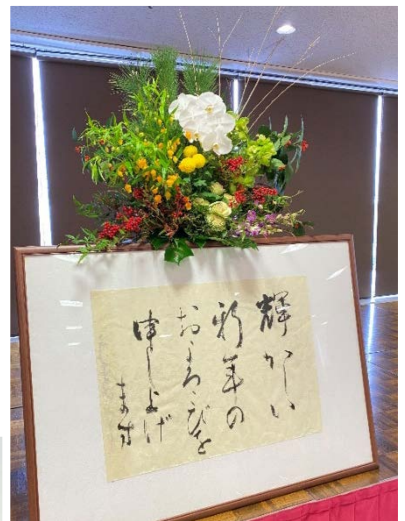 輝かしい
新年の
およろこびを
申し上げ
ます